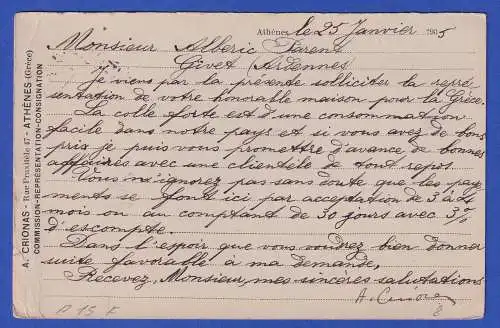 Athènes, le 25 Janvier 1905
Monsieur Alberic Parent
Givet (Ardennes)
Je viens par la présente solliciter la repré-
sentation de votre honorable maison pour la Grèce.
La colle forte est d'une consommation
facile dans notre pays et si vous avez de bons
prix je puis vous promettre d'avance de bonnes
affaires avec une clientèle de tout repos.
Vous n'ignorez pas sans doute que les pay-
ments se font ici par acceptation de 3 à 4
mois ou au comptant de 30 jours avec 3%
d'escompte.
Dans l'espoir que vous voudrez bien donner
suite favorable à ma demande,
Recevez, Monsieur, mes sincères salutations
A. Crionas
A. CRIONAS - Rue Praxitèle 47 - ATHÈNES (Grèce)
COMMISSION-REPRÉSENTATION-CONSIGNATION
P 15 F